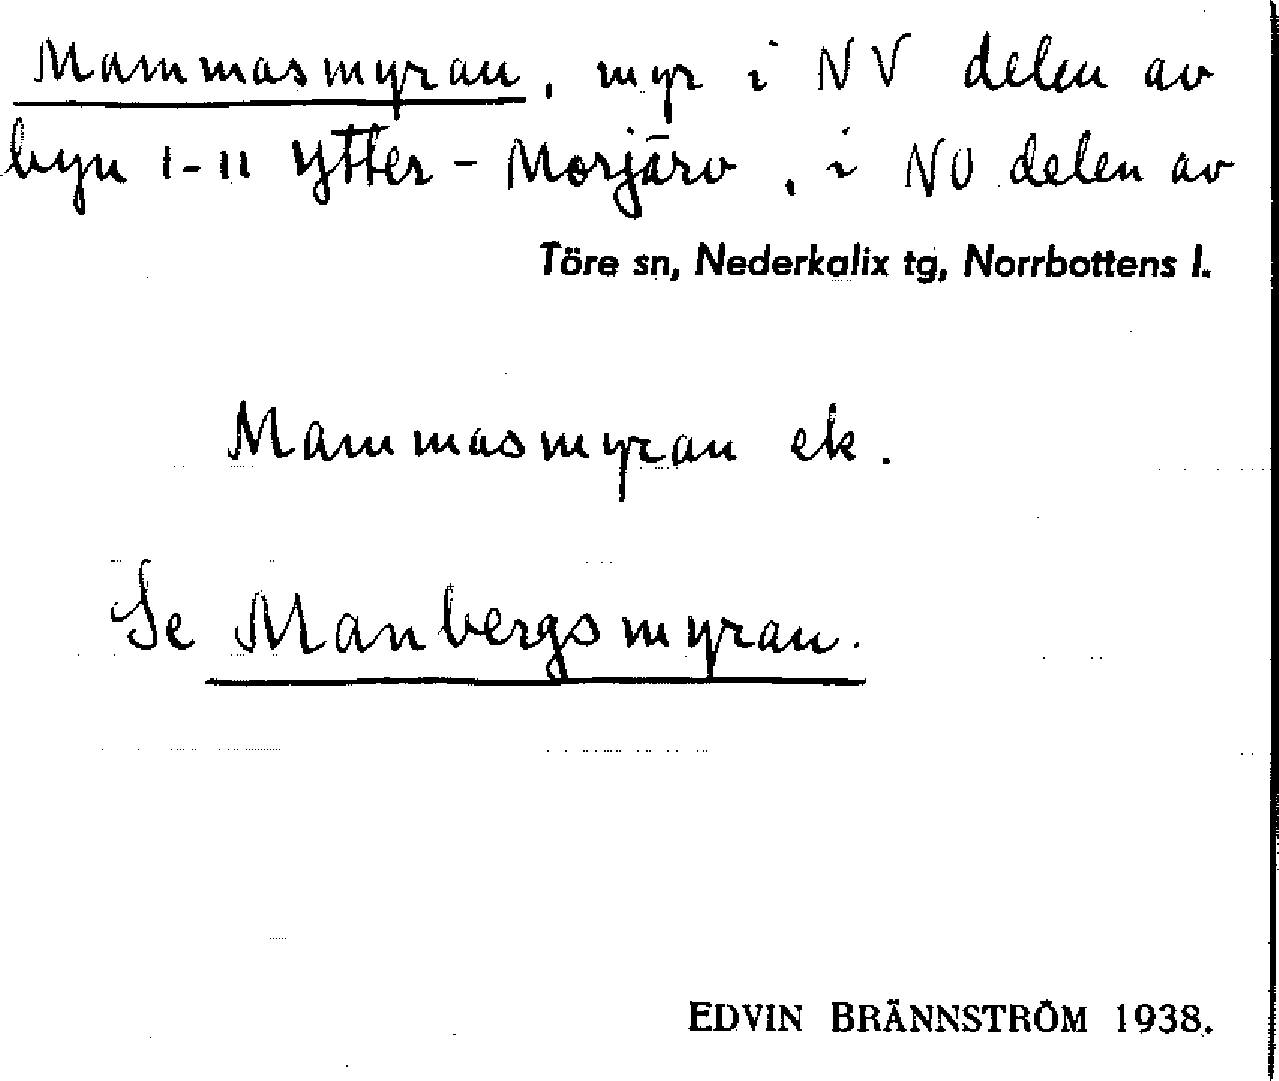 Mammasmyran, myr i NV delen av
byn 1-11 Ytter-Morjärv, i NO delen av
Töre sn, Nederkalix tg, Norrbottens l.
Mammasmyran ek.
Se Manbergsmyran.
EDVIN BRÄNNSTRÖM 1938.